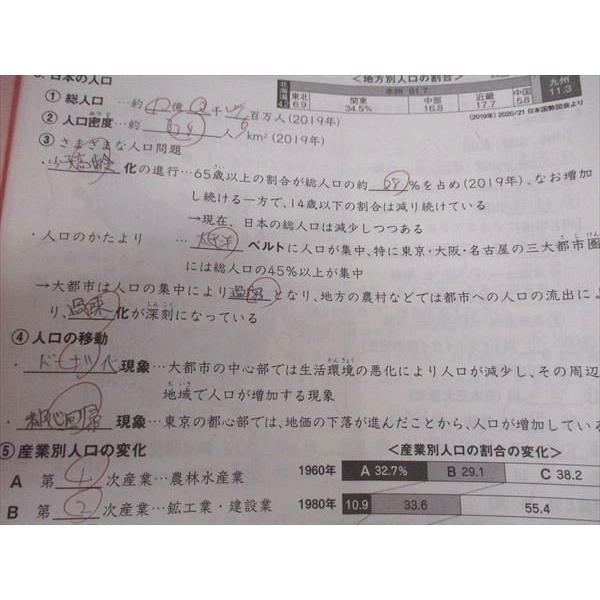 3. 日本の人口
<地方別人口の割合>
北海道 4.2 東北 6.9 本州 81.7 関東 34.5% 中部 16.8 近畿 17.7 中国 5.8 九州 11.3
(2019年) 2020/21 日本国勢図会より
① 総人口 …約 億 千 百万人 (2019年)
② 人口密度…約 338 人/km² (2019年)
③ さまざまな人口問題
・少子高齢 化の進行…65歳以上の割合が総人口の約 28 %を占め (2019年)、なお増加
し続ける一方で、14歳以下の割合は減り続けている
→現在、日本の総人口は減少しつつある
・人口のかたより …太平洋 ベルトに人口が集中、特に東京・大阪・名古屋の三大都市圏
には総人口の45%以上が集中
→大都市は人口の集中により過密となり、地方の農村などでは都市への人口の流出によ
り、過疎化が深刻になっている
④ 人口の移動
・ドーナツ化 現象…大都市の中心部では生活環境の悪化により人口が減少し、その周辺
地域で人口が増加する現象
・都心回帰 現象…東京の都心部では、地価の下落が進んだことから、人口が増加している
⑤ 産業別人口の変化
<産業別人口の割合の変化>
A 第 1 次産業…農林水産業
1960年 A 32.7% B 29.1 C 38.2
B 第 2 次産業…鉱工業・建設業
1980年 10.9 33.6 55.4